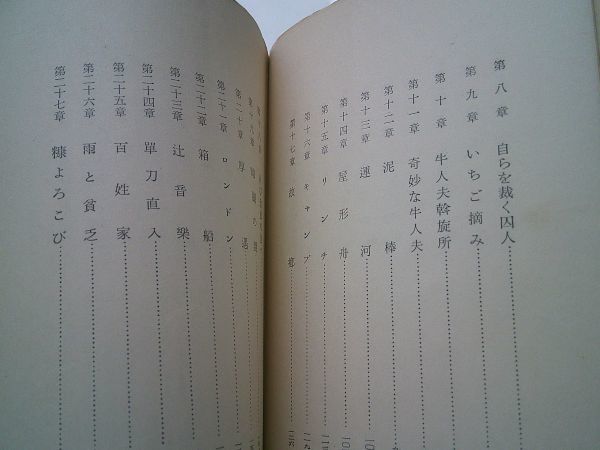 第八章 自らを裁く囚人
第九章 いちご摘み
第十章 牛人夫斡旋所
第十一章 奇妙な牛人夫
第十二章 泥棒
第十三章 運河
第十四章 屋形舟
第十五章 リンチ
第十六章 キャンプ
第十七章 放
第二十章 厚
第二十一章 ロンドン
第二十二章 箱船
第二十三章 辻音樂
第二十四章 單刀直入
第二十五章 百姓家
第二十六章 雨と貧乏
第二十七章 糠よろこび